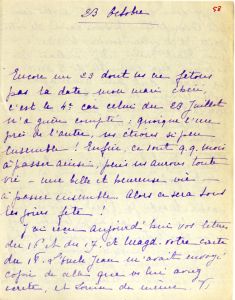 58
23 Octobre
Encore un 23 dont ns ne fêtons
pas la date, mon mari chéri,
c'est le 4e car celui du 23 Juillet
n'a guère compté; quoique l'un
près de l'autre, ns étions si peu
ensemble ! Enfin, ce sont q.q. mois
à passer ainsi, puis ns aurons toute
vie - une belle et heureuse vie
à passer ensemble. Alors ce sera tous
les jours fête !
J'ai reçu aujourd'hui vos lettres
du 16 et du 17, et Magd. votre carte
du 18. Jean m'avait envoyé
copie de celle que vs lui avez
écrite, et Louise de même.